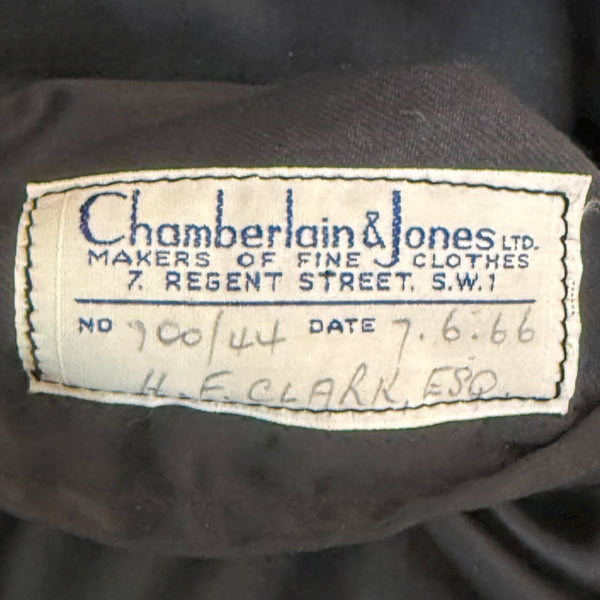 Chamberlain & Jones LTD.
MAKERS OF FINE CLOTHES
7. REGENT STREET. S.W.1
NO 700/44 DATE 7.6.66
H.F. CLARK, ESQ.